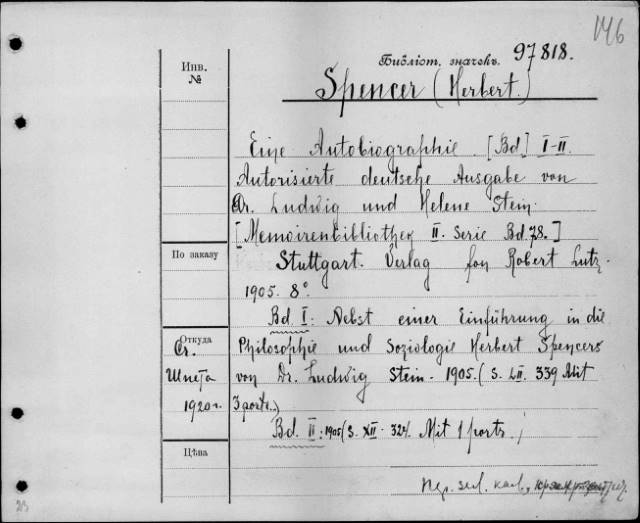 146
Библіот. значекъ. 97818.
Spencer (Herbert.)
Инв.
№
Eine Autobiographie. [Bd] I-II.
Autorisierte deutsche Ausgabe von
Dr. Ludwig und Helene Stein.
[Memoirenbibliothek II. Serie Bd. 78.]
По заказу
Stuttgart. Verlag fon Robert Lutz.
1905. 8°
Bd I: Nebst einer Einführung in die
Откуда
Ст. Шпета 1920 г.
Philosophie und Soziologie Herbert Spencers
von Dr. Ludwig Stein. 1905. (S. LII. 339 Mit
3 ports.)
Bd. II: 1905 (S. XII. 324. Mit 1 ports.)
Цѣна
Пер. зел. кал.,
23